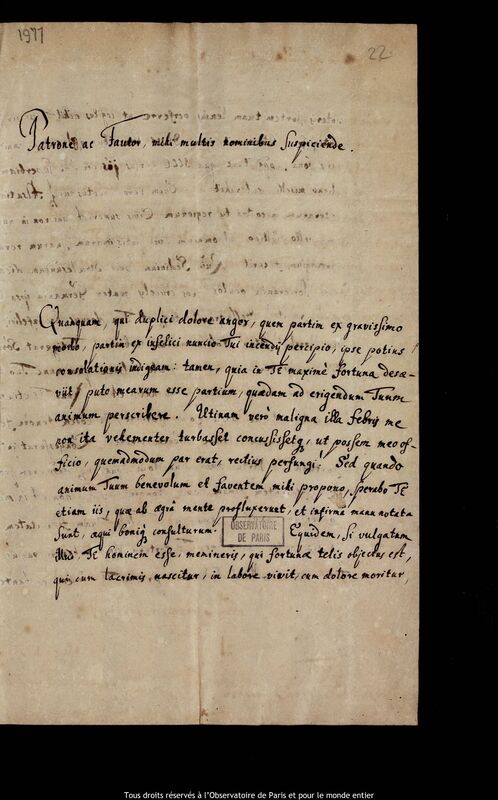 1977
22.
Patrone ac Fautor, mihi multis nominibus Suspiciende.
Quanquam, qui duplici dolore angor, quem partim ex gravissimo
morbo, partim ex infelici nuncio Tui incendij percipio, ipse potius
consolationis indigeam: tamen, quia in Te maximè fortuna desæ-
viit, puto mearum esse partium, quædam ad erigendum Tuum
animum perscribere. Utinam verò maligna illa febris me
non ita vehementer turbasset concussissetq, ut possem meo of-
ficio, quemadmodum par erat, rectius perfungi! Sed quando
animum Tuum benevolum et faventem mihi propono, spero Te
etiam iis, quæ ab ægrâ mente profluxerunt, et infirmâ manu notata
sunt, æqui boniq consulturum. Equidem, si vulgatum
Te hominem esse, memineris, qui fortunæ telis objectus est,
qui cum lacrimis nascitur, in labore vivit, cum dolore moritur,
OBSERVATOIRE
DE PARIS
Tous droits réservés à l'Observatoire de Paris et pour le monde entier